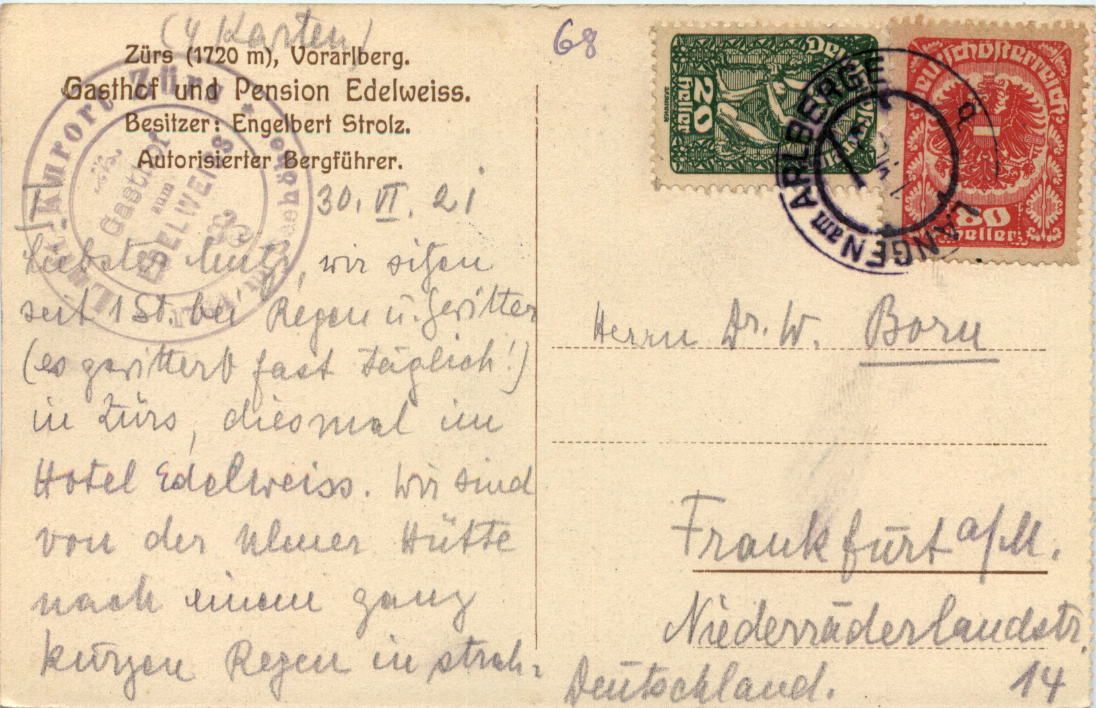 (4 Karten)
68
Zürs (1720 m), Vorarlberg.
Gasthof und Pension Edelweiss.
Besitzer: Engelbert Strolz.
Autorisierter Bergführer.
Kurort Zürs
Gasthof
zum
EDELWEISS
20
Heller
Deutschösterreich
80
Heller
LANGEN am ARLBERGE
I
30. VI. 21
Liebster wir sitzen
seit 1 St. bei Regen u. Gewitter
(es gewittert fast täglich!)
in Zürs, diesmal im
Hotel Edelweiss. Wir sind
von der Ulmer Hütte
nach einem ganz
kurzen Regen in strah-
Herrn Dr. W. Born
Frankfurt a/M.
Niederräderlandstr.
14
Deutschland.